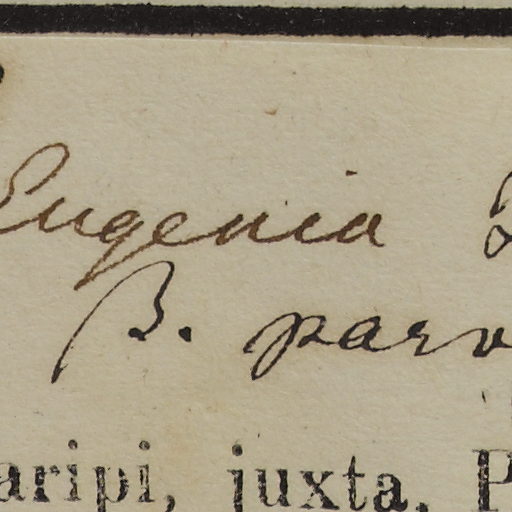 Eugenia
β. parv
aripi, juxta. P